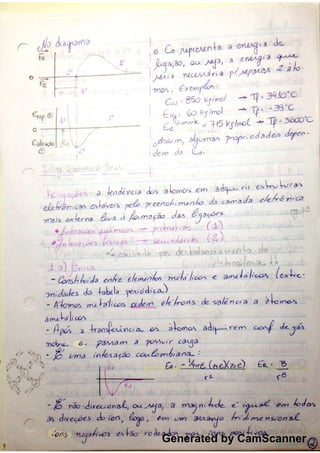 No diagrama
FR
0
FR
Erep ⊕
0
E atração
⊖
E₀ Co representa a energia de
ligação, ou seja, a energia que
seria necessária p/ separar 2 áto-
mos. Exemplos:
Ew: 850 Kj/mol → Tf = 3410°C
EHg: 60 Kj/mol → Tf = -39°C
715 Kj/mol → Tf = 3600°C
Assim, algumas propriedades depen-
dem da E₀.
Ligações: a tendência dos átomos em adquirir estruturas
eletrônicas estáveis pelo preenchimento da camada eletrônica
mais externa leva à formação das ligações.
• Ligações químicas → primárias (1)
• Interações físicas → secundárias (2)
causada por desbalanceamento da
eletrosfera !!
1.a) Iônica
- Constituída entre elementos metálicos e ametálicos (extre-
midades da tabela periódica)
- Átomos metálicos cedem elétrons de valência a átomos
ametálicos
- Após a transferência os átomos adquirem conf de gás
nobre e passam a possuir carga
- É uma interação coulombiana:
r²
ER = B
r⁸
- É não-direcional, ou seja, a magnitude é igual em todas
as direções do íon, logo, em um arranjo tridimensional
íons negativos estão rodeados por íons positivos
Generated by CamScanner